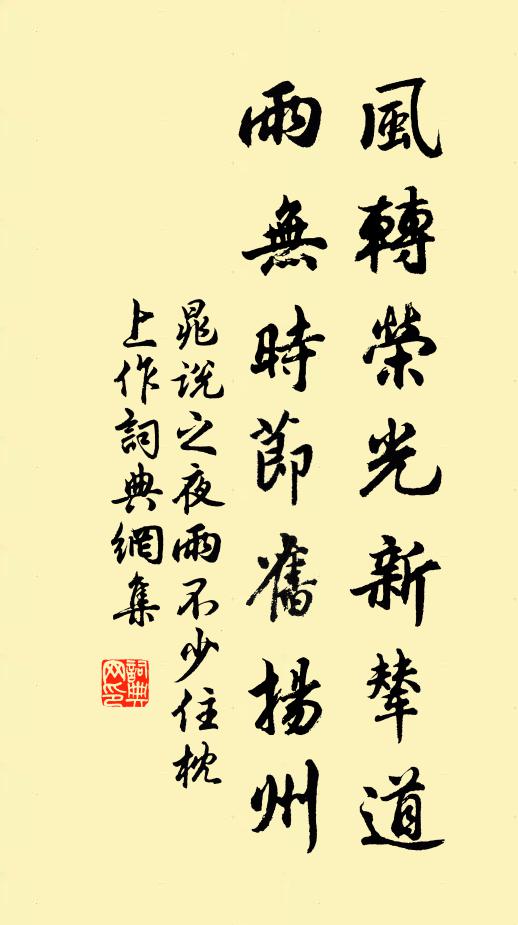 風轉榮光新輦道
雨無時節舊揚州
晁說之夜雨不少住枕
上作詞典網集
詞典
网印